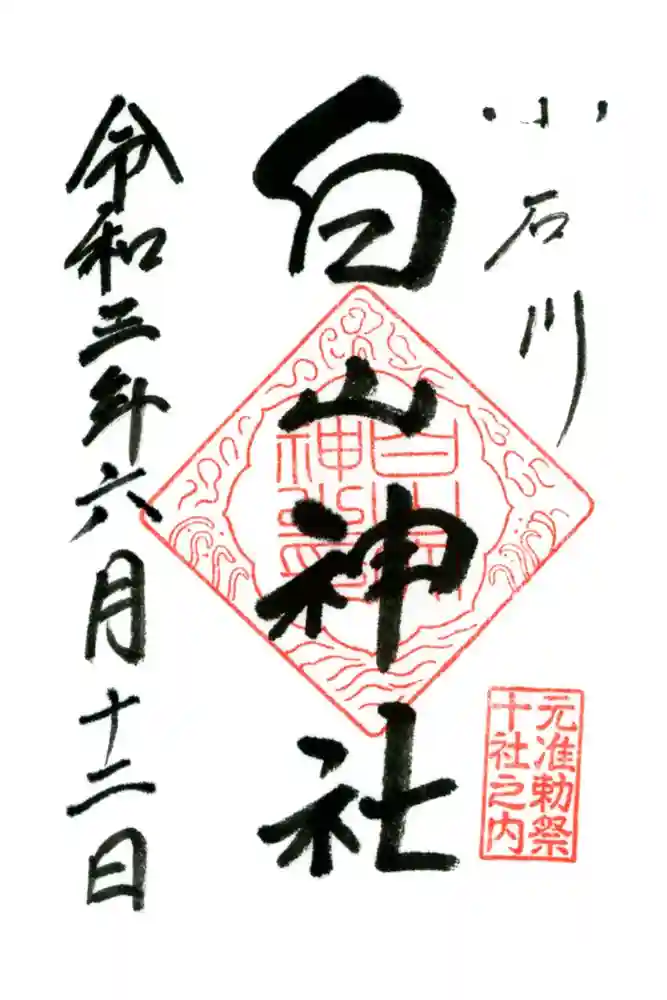 小石川
白山神社
令和三年六月十二日
白山
神璽
元准勅祭
十社之内